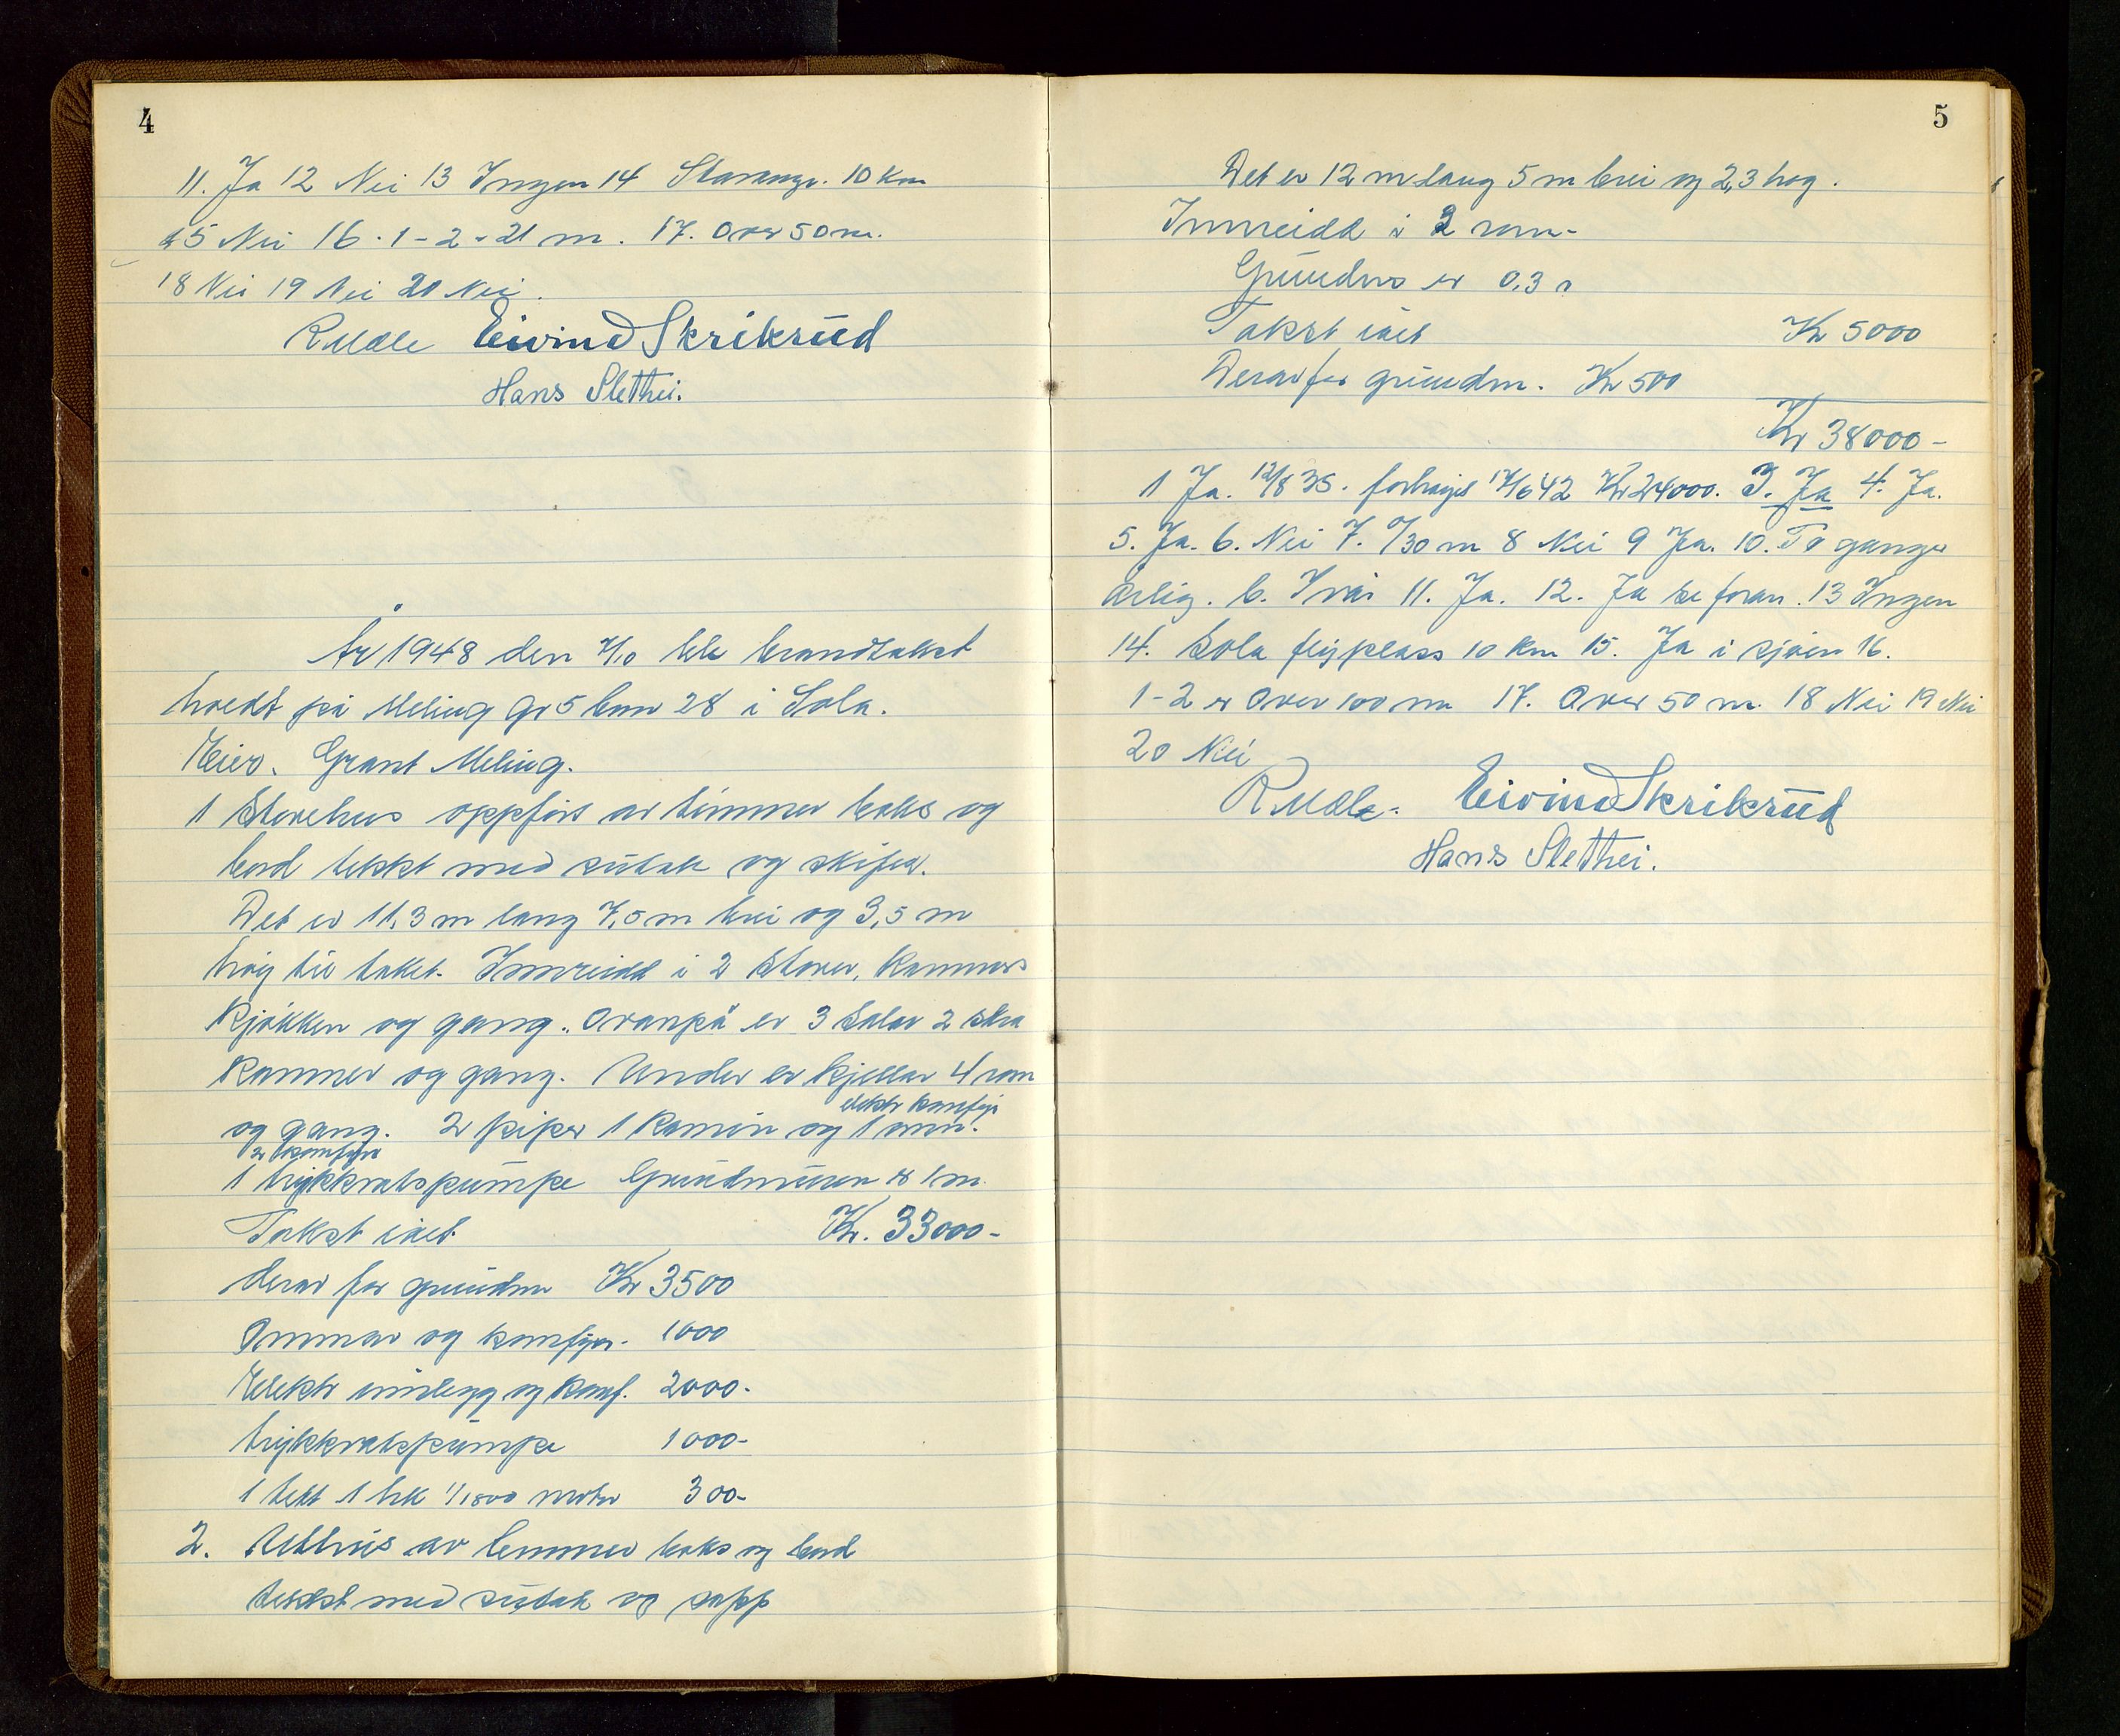 4
11. Ja 12 Nei 13 Ingen 14 Stavange. 10 km
15 Nei 16. 1-2-21 m. 17. Over 50 m.
18 Nei 19 Nei 20 Nei.
R Melle Eivind Skriksrud
Hans Slethei.
År 1948 den 7/10 ble brandtakst
holdt på Meling gr 5 bnr 28 i Sola.
Eier. Grant Meling.
1 Stovehus oppfört av timmer boks og
bord tekkt med sutak og skifer.
Det er 11,3 m lang 7,5 m brei og 3,5 m
høg til taket. Innreidd i 2 stover, kammers
kjøkken og gang. Ovanpå er 3 salar 2 skra
kammer og gang. Under er kjellar 4 rom
elektr komfyr
og gang. 2 piper 1 kamin og 1 omn.
2 komfyre
1 trykkvatspumpe Grundmuren er 1 m.
Takst ialt Kr. 33000-
derav for grundm Kr 3500
Omnar og komfyr. 1000
Elektr innlegg og komf. 2000.
trykkvatspumpe 1000-
1 hk 1/1800 motor 300-
2. Uthus av temmer boks og bord
tekkt med sutak og papp
5
Det er 12 m lang 5 m brei og 2,3 høg.
Innreidd i 2 rom-
Grundm er 0,3
Takst ialt Kr 5000
Derav for grundm. Kr 500
Kr 38000-
1 Ja. 12/8 35. forhøyet 17/6 42 Kr 24000. 3. Ja 4. Ja.
5. Ja. 6. Nei 7. 0/30 m 8 Nei 9 Ja. 10. To ganger
årlig. b. I vår 11. Ja. 12. Ja se foran. 13 Ingen
14. Sola flyplass 10 km 15. Ja i sjøen 16.
1-2 er over 100 m 17. Over 50 m. 18 Nei 19 Nei
20 Nei
R Melle. Eivind Skriksrud
Hans Slethei.